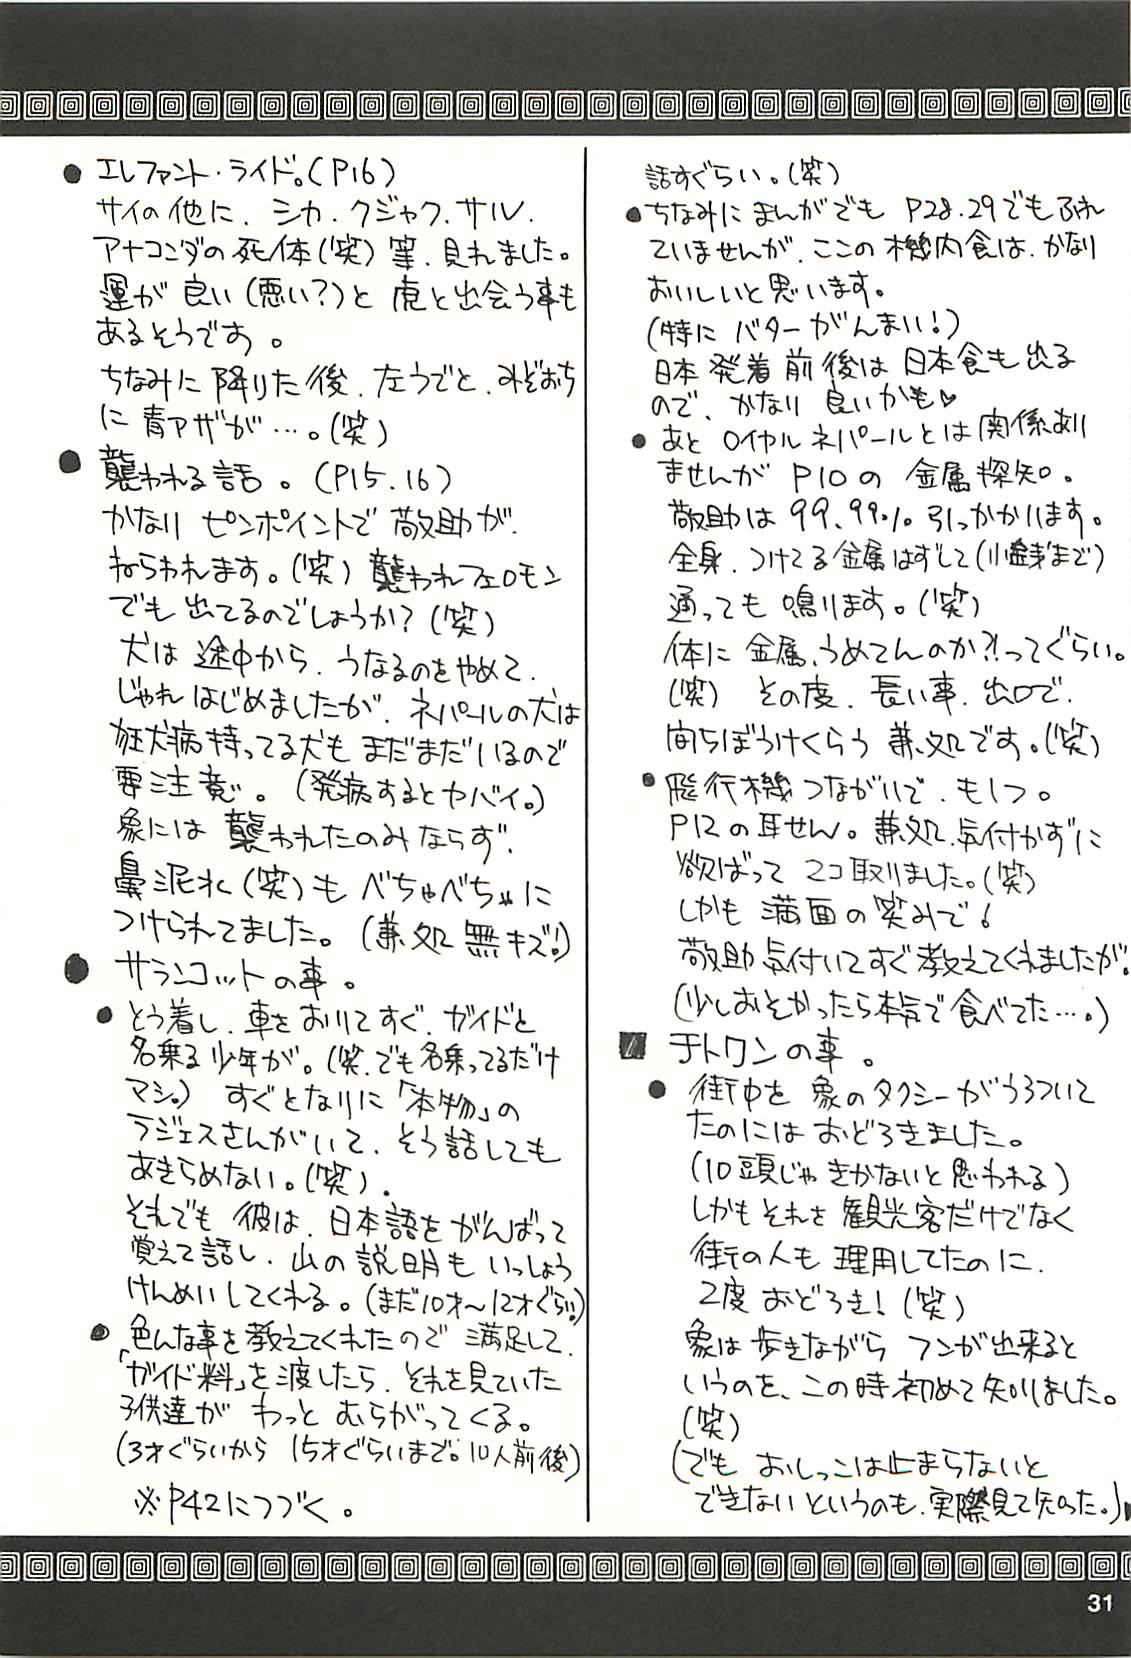 話すぐらい。(笑)
●ちなみにまんがでも P28.29でもふれ
ていませんが、ここの機内食は、かなり
おいしいと思います。
(特にバターがんまい!)
日本発着前後は日本食も出る
ので、かなり良いかも♥
●あと ロイヤルネパールとは関係あり
ませんが P10の 金属探知。
敬助は 99.99% 引っかかります。
全身、つけてる金属はずして(小銭まで)
通っても鳴ります。(笑)
体に金属、うめてんのか?!ってぐらい。
(笑) その度、長い事、出口で、
待ちぼうけくらう兼処です。(笑)
●飛行機つながりで、もう1つ。
P12の耳せん。兼処、気付かずに
欲ばって2コ取りました。(笑)
しかも満面の笑みで!
敬助気付いてすぐ教えてくれましたが。
(少しおそかったら本気で食べてた…。)
■チトワンの事。
●街中を象のタクシーがうろついて
たのにはおどろきました。
(10頭じゃきかないと思われる)
しかもそれを観光客だけでなく
街の人も理用してたのに、
2度おどろき!(笑)
象は歩きながらフンが出来ると
いうのを、この時初めて知りました。
(笑)
(でもおしっこは止まらないと
できないというのも、実際見て知った。)
●エレファント・ライド。(P16)
サイの他に、シカ、クジャク、サル、
アナコンダの死体(笑)等、見れました。
運が良い(悪い?)と虎と出会う事も
あるそうです。
ちなみに降りた後、左うでと、みぞおち
に青アザが…。(笑)
●襲われる話。(P15.16)
かなりピンポイントで敬助が、
ねらわれます。(笑)襲われフェロモン
でも出てるのでしょうか?(笑)
犬は途中から、うなるのをやめて、
じゃれはじめましたが、ネパールの犬は
狂犬病持ってる犬もまだまだいるので
要注意。(発病するとヤバイ。)
象には襲われたのみならず、
鼻泥水(笑)もべちゃべちゃに
つけられてました。(兼処無キズ!)
●サランコットの事。
●とう着し、車をおりてすぐ、ガイドと
名乗る少年が。(笑、でも名乗ってるだけ
マシ。)すぐとなりに「本物」の
ラジェスさんがいて、そう話しても
あきらめない。(笑)。
それでも彼は、日本語をがんばって
覚えて話し、山の説明もいっしょう
けんめいしてくれる。(まだ10才〜12才ぐらい!)
●色んな事を教えてくれたので満足して、
「ガイド料」を渡したら、それを見ていた
子供達がわっとむらがってくる。
(3才ぐらいから15才ぐらいまで。10人前後)
※P42につづく。
31